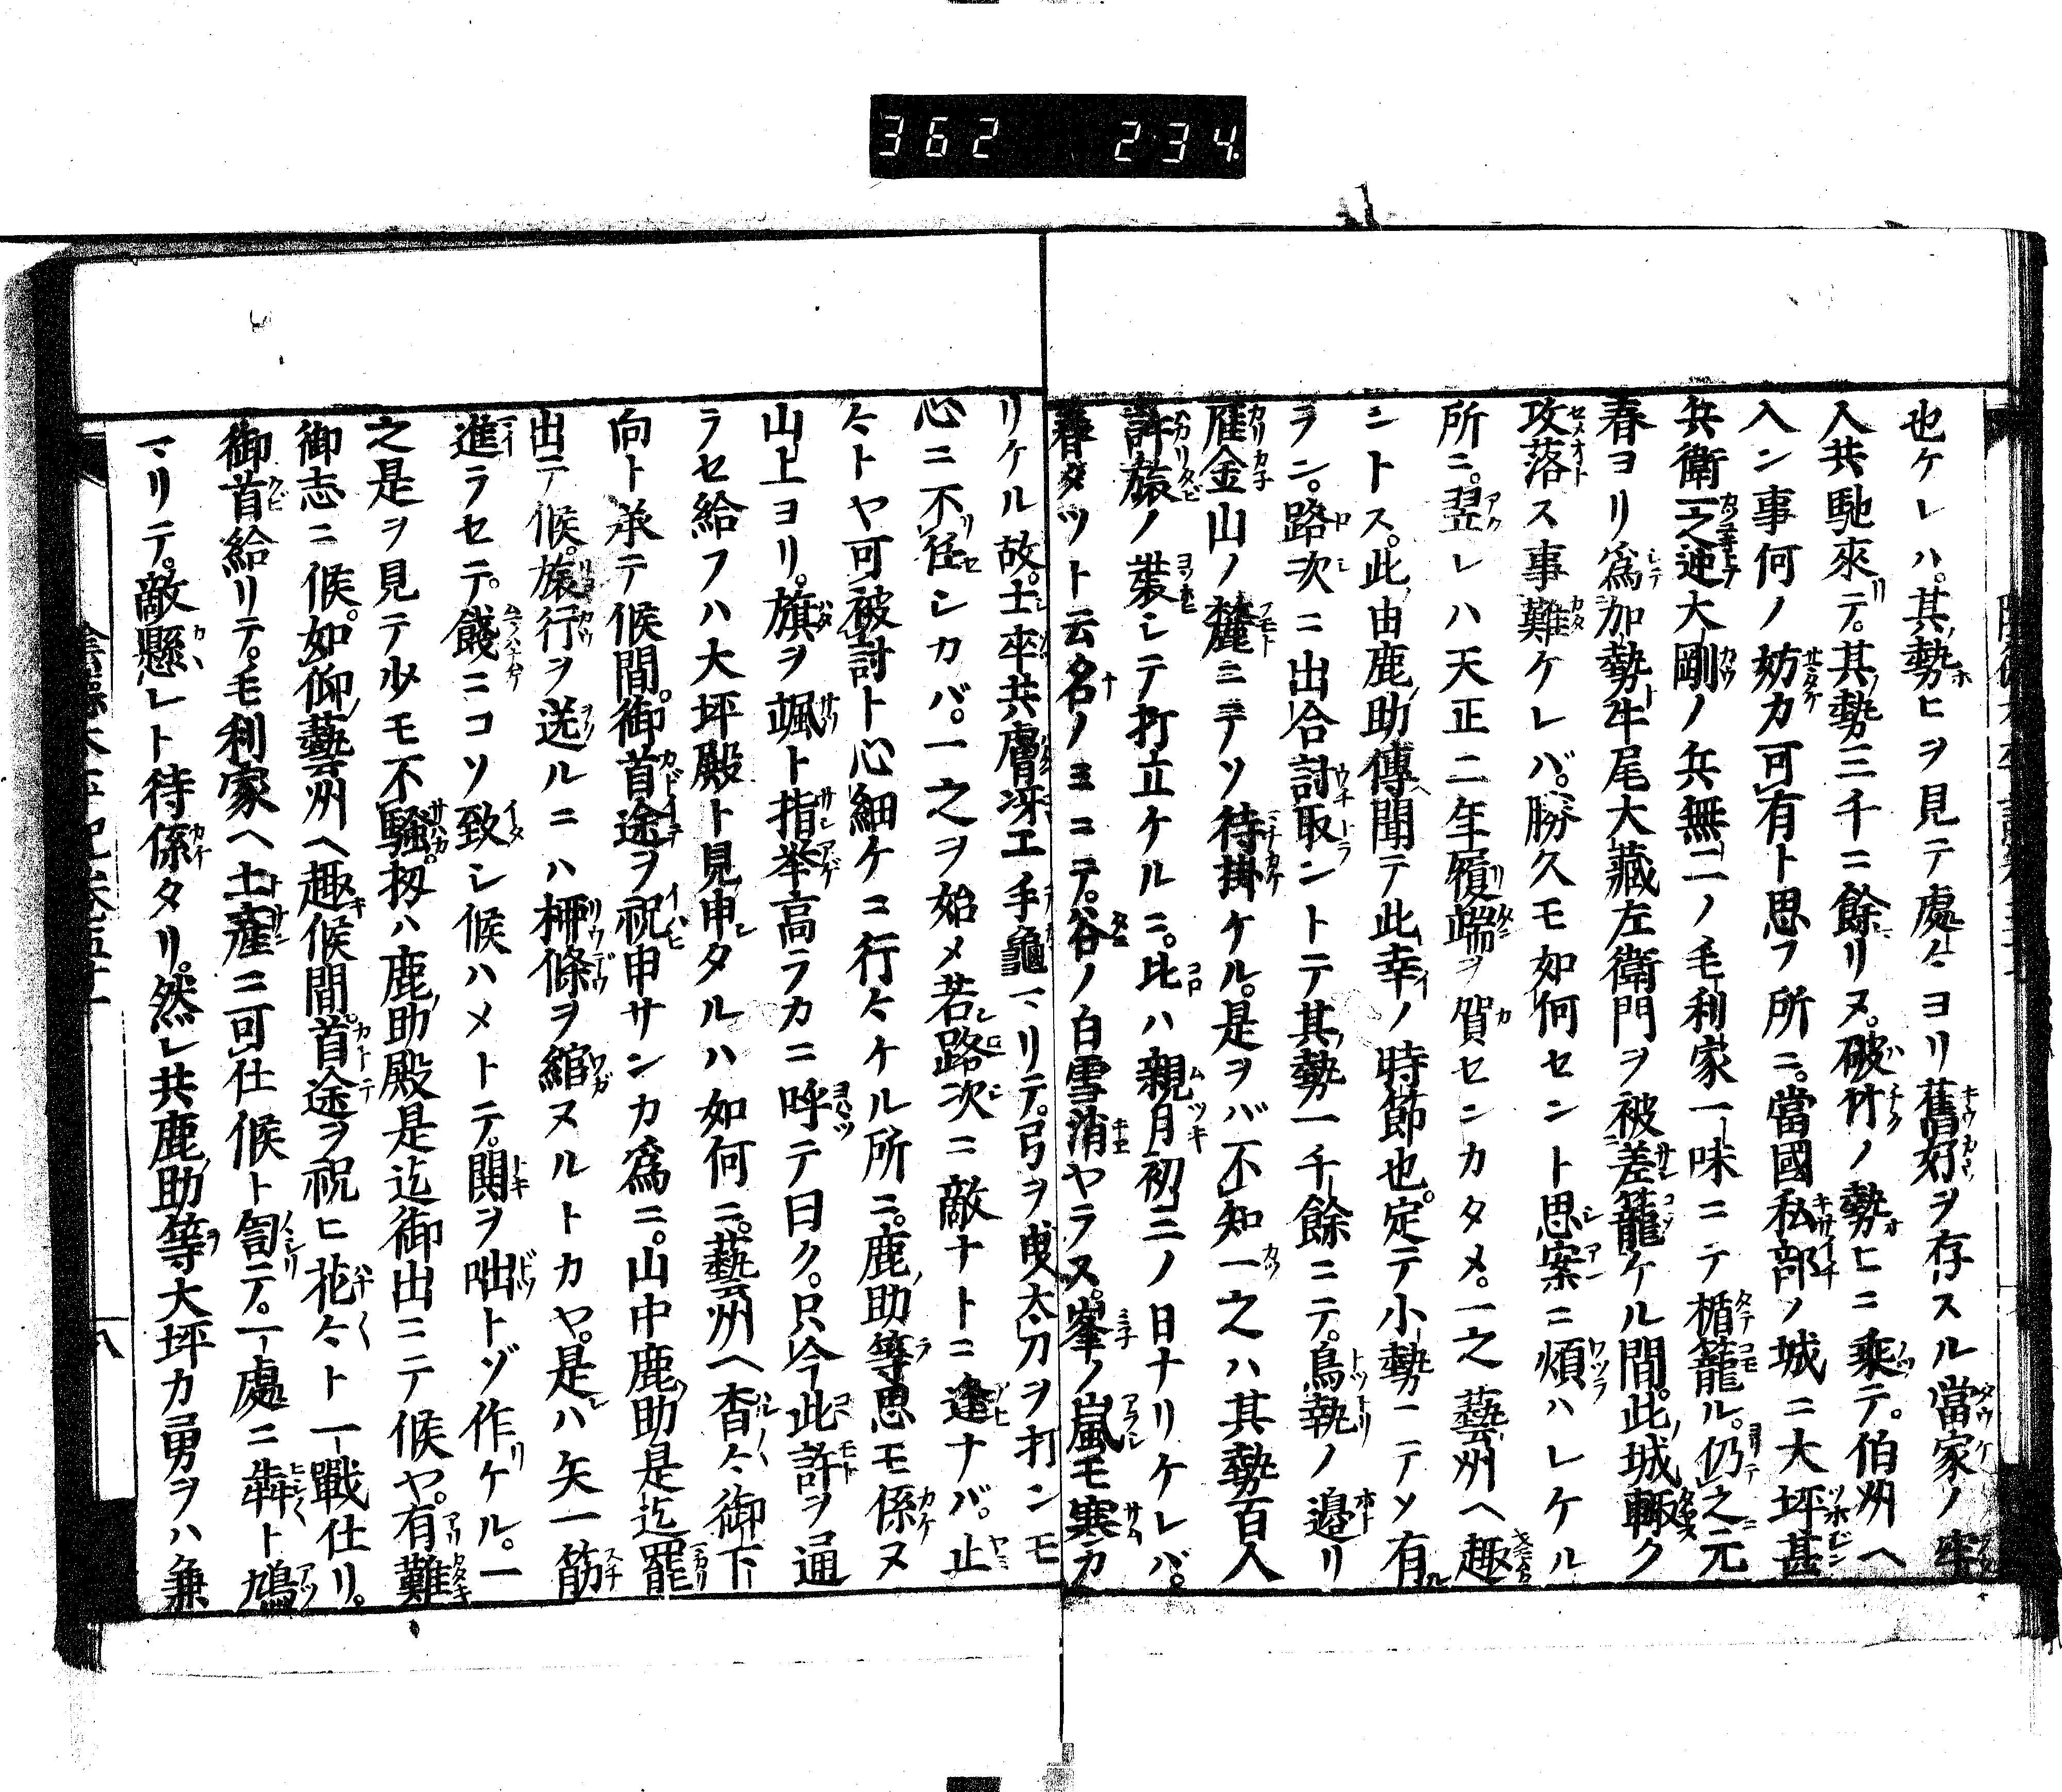 362 234
也ケレハ。其勢ヒヲ見テ處々ヨリ舊好ヲ存スル當家ノ牢
人共馳來テ。其勢三千ニ餘リヌ。破竹ノ勢ヒニ乘テ。伯州ヘ
入ン事何ノ妨カ可有ト思フ所ニ。當國私部ノ城ニ大坪甚
兵衛一之迚大剛ノ兵無二ノ毛利家一味ニテ楯籠ル。仍之元
春ヨリ爲加勢牛尾大藏左衛門ヲ被差籠ケル間。此城輙ク
攻落ス事難ケレバ。勝久モ如何セント思案ニ煩ハレケル
所ニ。翌レハ天正二年履端ヲ賀センカタメ。一之藝州ヘ趣
ントス。此由鹿助傳聞テ此幸ノ時節也。定テ小勢ニテソ有
ラン。路次ニ出合討取ントテ其勢一千餘ニテ。鳥執ノ邊リ
雁金山ノ麓ニテソ待掛ケル。是ヲバ不知一之ハ其勢百人
許旅ノ裝シテ打立ケルニ。比ハ親月初ニノ日ナリケレバ。
春タツト云名ノミニテ。谷ノ白雪消ヤラス。峯ノ嵐モ寒カ
リケル故。士卒共膚冴エ手龜マリテ。弓ヲ曳太刀ヲ打ンモ
心ニ不任シカバ。一之ヲ始メ若路次ニ敵ナトニ逢ナバ。止
々トヤ可被討ト心細ケニ行々ケル所ニ。鹿助等思モ係ヌ
山上ヨリ。旗ヲ颯ト指挙高ラカニ呼テ曰ク。只今此許ヲ通
ラセ給フハ大坪殿ト見申タルハ如何ニ。藝州ヘ杳々御下
向ト承テ候間。御首途ヲ祝申サンカ爲ニ。山中鹿助是迄罷
出テ候。旅行ヲ送ルニハ柳條ヲ綰ヌルトカヤ。是ハ矢一筋
進ラセテ。餞ニコソ致シ候ハメトテ。関ヲ咄トゾ作リケル。一
之是ヲ見テ少モ不騒。扨ハ鹿助殿是迄御出ニテ候ヤ。有難
御志ニ候。如仰藝州ヘ趣候間。首途ヲ祝ヒ花々ト一戰仕リ。
御首給リテ。毛利家ヘ土産ニ可仕候ト訇テ。一處ニ犇ト鳩
マリテ。敵懸レト待係タリ。然レ共鹿助等大坪カ勇ヲハ兼
八